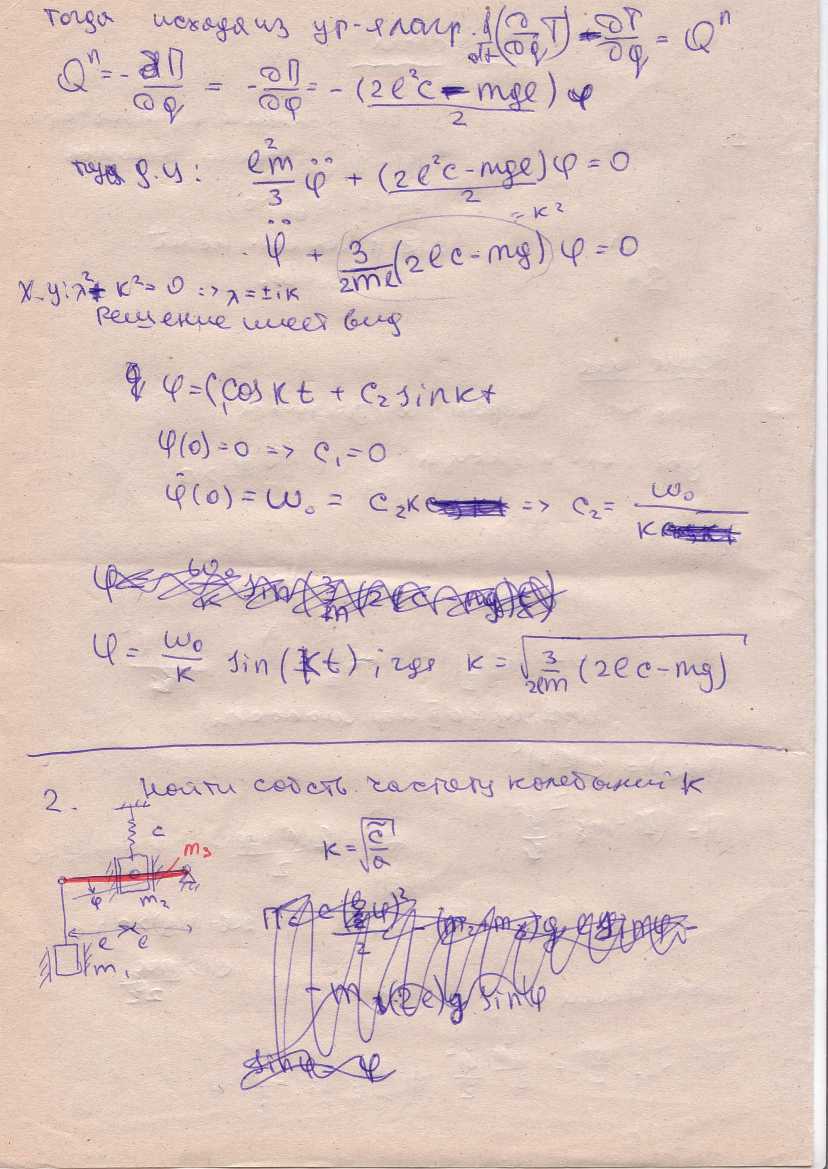 тогда исходя из ур-я лагр. d/dt (∂/∂q̇ T) - ∂T/∂q = Qⁿ
Qⁿ = -∂П/∂q = -∂П/∂φ = -(2l²c - mgl)/2 φ
d.y: l²m/3 φ̈ + (2l²c - mgl)/2 φ = 0
= k²
φ̈ + 3/2ml (2lc - mg) φ = 0
х.у: λ² + k² = 0 => λ = ±ik
Решение имеет вид
φ = C₁cos kt + C₂ sin kt
φ(0) = 0 => C₁ = 0
φ̇(0) = ω₀ = C₂k => C₂ = ω₀/k
φ = ω₀/k sin(kt), где k = √(3/2lm (2lc - mg))
2. Найти собств. частоту колебаний k
c
m₃
k = √(c̃/a)
φ
m₂
l l
m₁